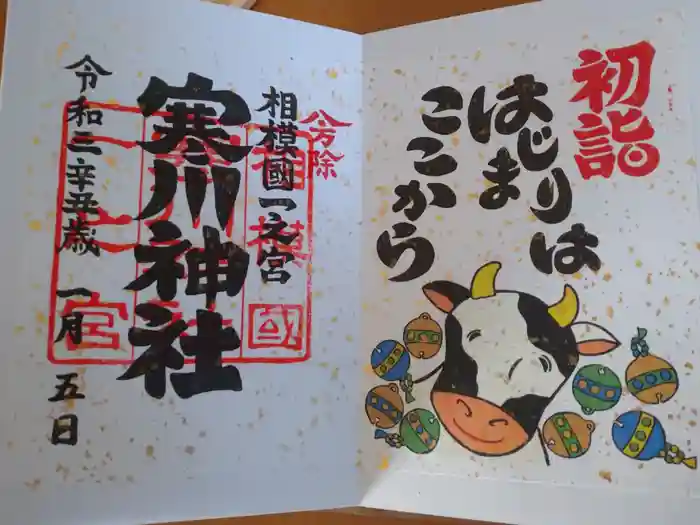 初詣
はじまりは
ここから
八方除
相模國一之宮
寒川神社
令和三辛丑歳 一月 五日
相模國
一之宮